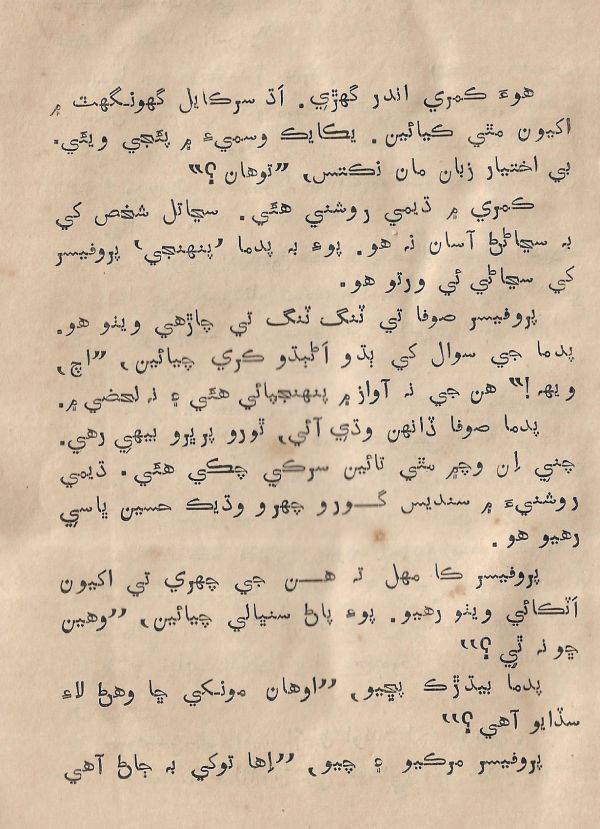 هوءَ ڪمري اندر گهڙي. اَڌ سرڪايل گهونگهٽ ۾
اکيون مٿي کيائين. يڪايڪ وسميءَ ۾ پئجي ويئي.
بي اختيار زبان مان نڪتس, ”توهان؟“
ڪمري ۾ ڌيمي روشني هئي. سڃاتل شخص کي
به سڃاڻڻ آسان نه هو. پوءِ به پدما ’پنهنجي‘ پروفيسر
کي سڃاڻي ئي ورتو هو.
پروفيسر صوفا تي ٽنگ ٽنگ تي چاڙهي ويٺو هو.
پدما جي سوال کي ٻڌو اَڻٻڌو ڪري چيائين, ”اچ,
ويهه!“ هن جي نه آواز ۾ پنهنجپائي هئي ۽ نه لحضي ۾.
پدما صوفا ڏانهن وڌي آئي, ٿورو پريرو بيهي رهي.
چني اِن وچ ۾ مٿي تائين سرڪي چڪي هئي. ڌيمي
روشنيءَ ۾ سنديس گورو چهرو وڌيڪ حسين ڀاسي
رهيو هو.
پروفيسر ڪا مهل ته هن جي چهري تي اکيون
اَٽڪائي ويٺو رهيو. پوءِ پاڻ سنڀالي چيائين, ”وهين
ڇو نه ٿي؟“
پدما بيڌڙڪ پڇيو, ”اوهان مونکي ڇا وهڻ لاءِ
سڏايو آهي؟“
پروفيسر مرڪيو ۽ چيو, ”اِها توکي به ڄاڻ آهي